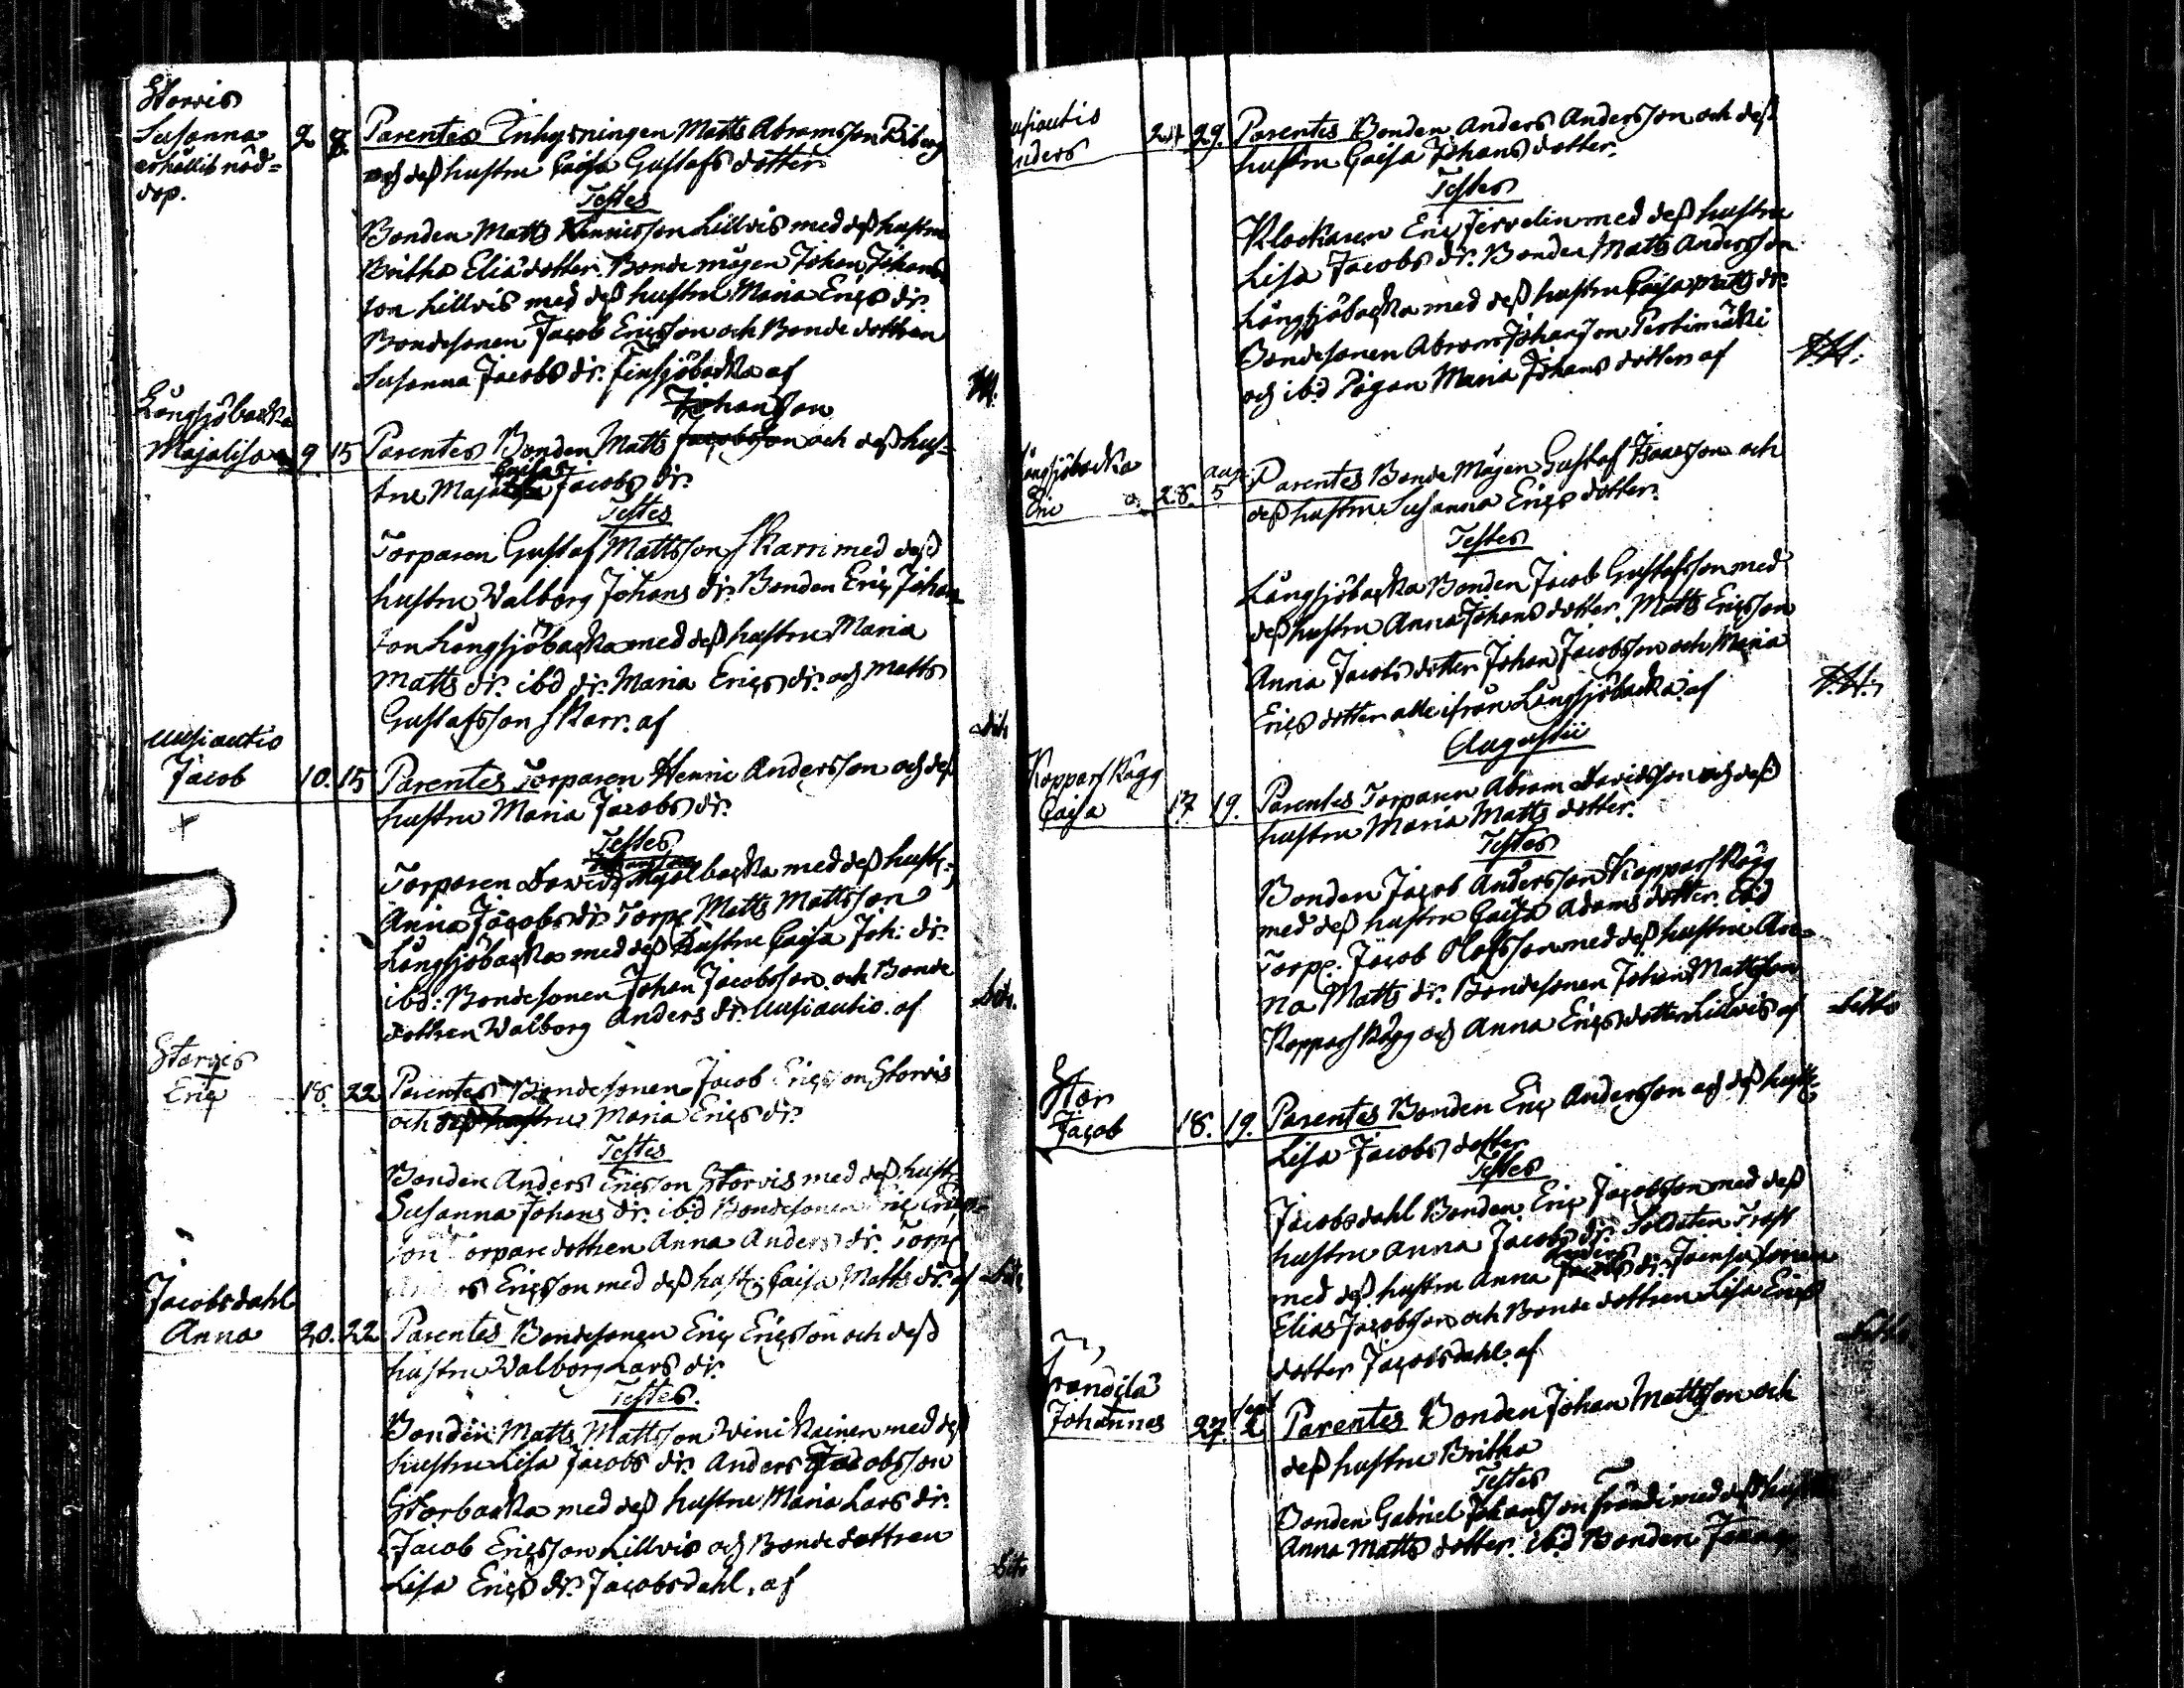 Storvis
Susanna 2 8. Parentes Inhysningen Matts Abramsson Viberg
erhållit nöd=
dop.
och deß hustru Caisa Gustafs dotter
Testes
Bonden Matts Henricsson Lillvis med deß hustru
Britha Eliä dotter. Bonde mågen Johan Johans
son Lillvis med deß hustru Maria Erics dr.
Bondesonen Jacob Ericsson och Bonde dottren
Susanna Jacobs dr. Finsjöbacka af
Johansson
Långsjöbacka
Majalisa 9 15 Parentes Bonden Matts Jacobsson och deß hus=
Caisa
tru Maja Jacobs dr.
Testes
Torparen Gustaf Mattsson Skarri med deß
hustru Walborg Johans dr. Bonden Eric Johan
son Långsjöbacka med deß hustru Maria
Matts dr. ibd dr. Maria Erics dr. och Matts
Gustafsson Skarr. af Dito
Uusiautio
Jacob 10. 15 Parentes Torparen Henric Andersson och deß
hustru Maria Jacobs dr.
Testes
Torparen David Mejolbacka med deß hust:
Anna Jacobs dr. Torp. Matts Mattsson
Långsjöbacka med deß hustru Caisa Joh: dr.
ibd: Bondesonen Johan Jacobsson och Bonde
dottren Walborg Anders dr. Uusiautio. af Dito.
Storvis
Eric 18. 22 Parentes Bondesonen Jacob Ericsson Storvis
och deß hustru Maria Erics dr.
Testes
Bonden Anders Ericsson Storvis med deß hust
Susanna Johans dr. ibd Bondesonen Eric Erics=
son Torparedottren Anna Anders dr. Torp
Anders Ericsson med deß hust: Caisa Matts dr. af Dito
Jacobsdahl
Anna 20. 22 Parentes Bondesonen Eric Ericsson och deß
hustru Walborg Lars dr.
Testes.
Bonden Matts Mattsson Winikainen med deß
hustru Lisa Jacobs dr. Anders Jacobsson
Storbacka med deß hustru Maria Lars dr.
Jacob Ericsson Lillvis och Bonde dottren
Lisa Erics dr. Jacobsdahl. af Dito
usiautis
nders 24 29. Parentes Bonden Anders Andersson och deß
hustru Caisa Johans dotter.
Testes
Klockaren Eric Jervelin med deß hustru
Lisa Jacobs dr. Bonden Matts Andersson
Långsjöbacka med deß hustru Caisa Matts dr.
Bondesonen Abram Johansson Pertimäki
och ibd Pigan Maria Johans dotter af
ångsjöbacka aug:
Eric 28. 5 Parentes Bonde Mågen Gustaf Isaacsson och
deß hustru Susanna Erics dotter.
Testes
Långsjöbacka Bonden Jacob Gustafsson med
deß hustru Anna Johans dotter. Matts Ericsson
Anna Jacobs dotter Johan Jacobsson och Maria
Erics dotter alle ifrån Långsjöbacka. af
Augustii
Kopparskägg
Caisa 17 19. Parentes Torparen Abram Davidsson och deß
hustru Maria Matts dotter.
Testes
Bonden Jacob Andersson Kopparskägg
med deß hustru Caisa Adams dotter. ibd
Torp. Jacob Olofsson med deß hustru An=
na Matts dr. Bondesonen Johan Mattsson
Kopparskägg och Anna Erics dotter Lillvis af Dito
Stor
Jacob 18. 19. Parentes Bonden Eric Andersson och deß hust:
Lisa Jacobs dotter
Testes
Jacobsdahl Bonden Eric Jacobsson med deß
hustru Anna Jacobs dr. Soldaten Trast
Anders
med deß hustru Anna Jacobs dr.
Elias Jacobsson och Bonde dottren Lisa Erics
dotter Jacobsdahl. af Dito
Frändilä sept
Johannes 27. 2 Parentes Bonden Johan Mattsson och
deß hustru Britha
Testes
Bonden Gabriel Johansson Frändi med deß
Anna Matts dotter. ibd Bonden